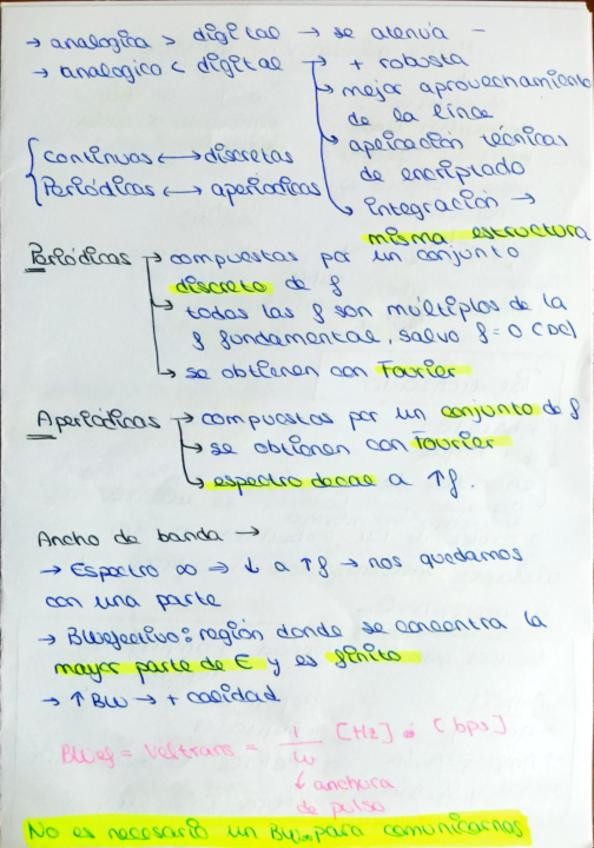 → analogica > digital → se atenúa -
→ analogico < digital → + robusta
→ mejor aprovechamiento
de la línea
→ aplicación técnicas
de encriptado
{ Continuas ↔ discretas
{ Periódicas ↔ aperiodicas
→ integración →
misma estructura
Periódicas → compuestas por un conjunto
discreto de f
→ todas las f son múltiplos de la
f fundamental, salvo f=0 (DC)
→ se obtienen con Fourier
Aperiódicas → compuestas por un conjunto de f
→ se obtienen con Fourier
→ espectro decae a ↑f.
Ancho de banda →
→ Espectro ∞ ⇒ ↓ a ↑f → nos quedamos
con una parte
→ BWefectivo: región donde se concentra la
mayor parte de E y es finito
→ ↑ BW → + calidad
BWef = Veltrans = 1/ω [Hz] ó [bps]
↓ anchura
de pulso
No es necesario un BW∞ para comunicarnos